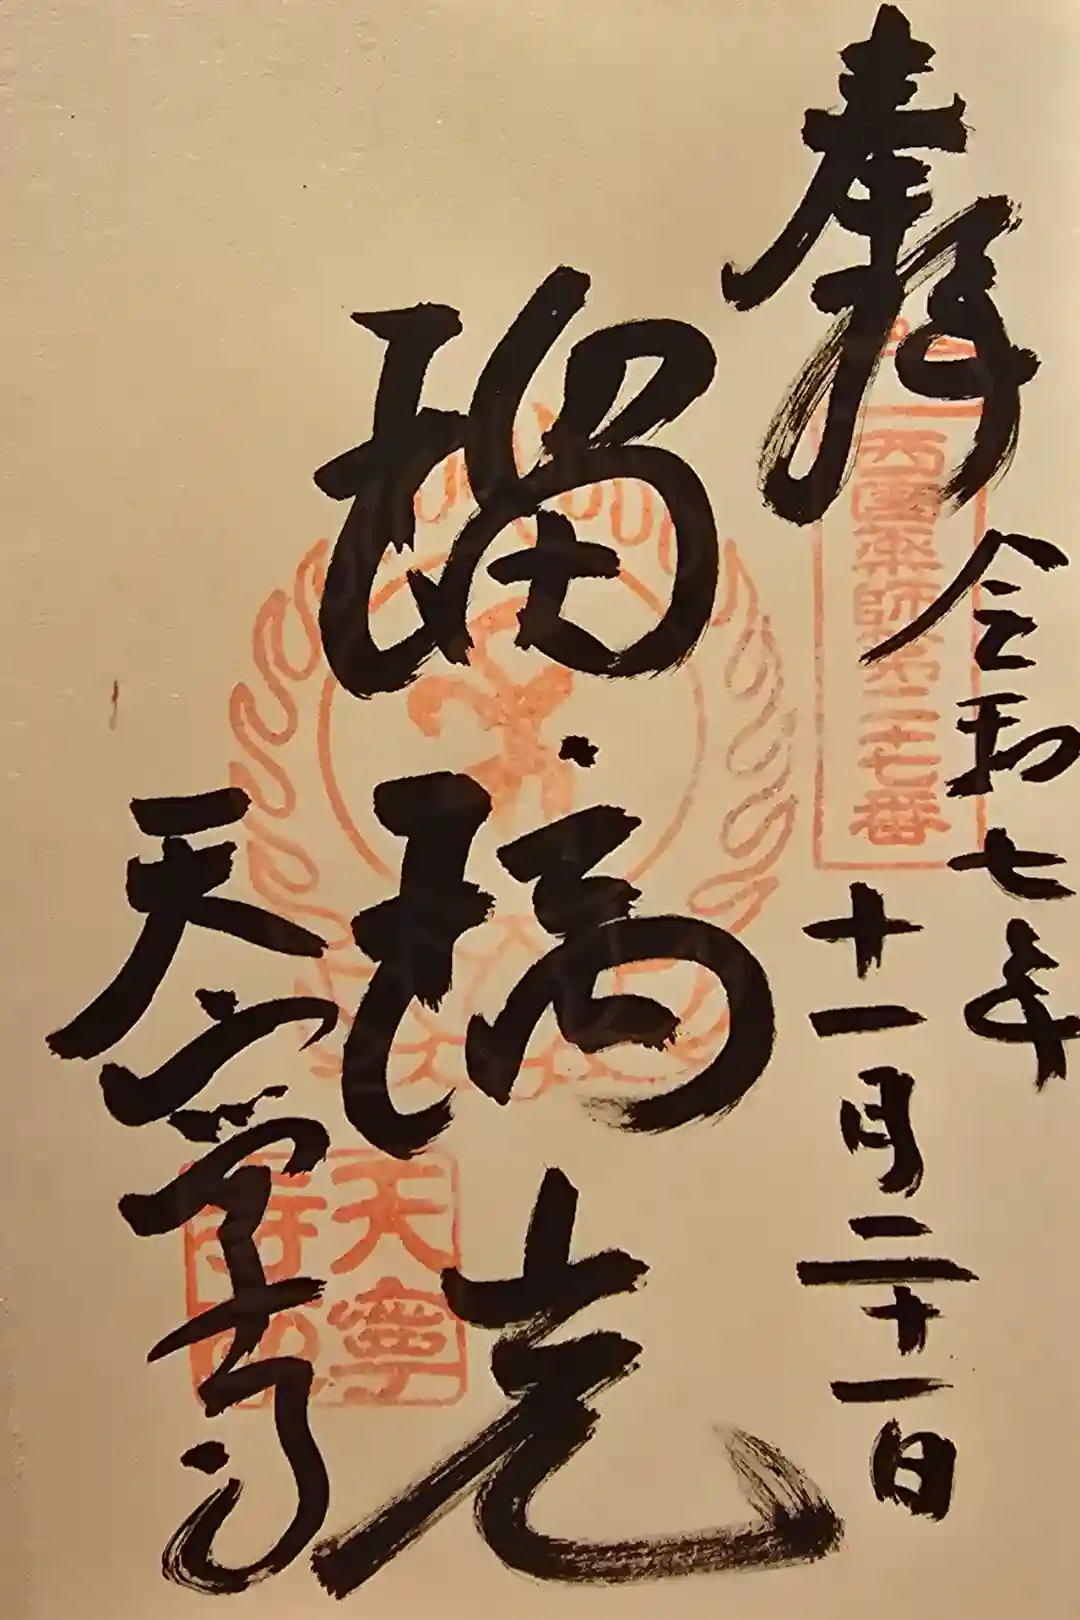 奉拝
西國薬師第二十七番
令和七年
十一月二十一日
瑠璃光
天寧寺
天寧
寺印